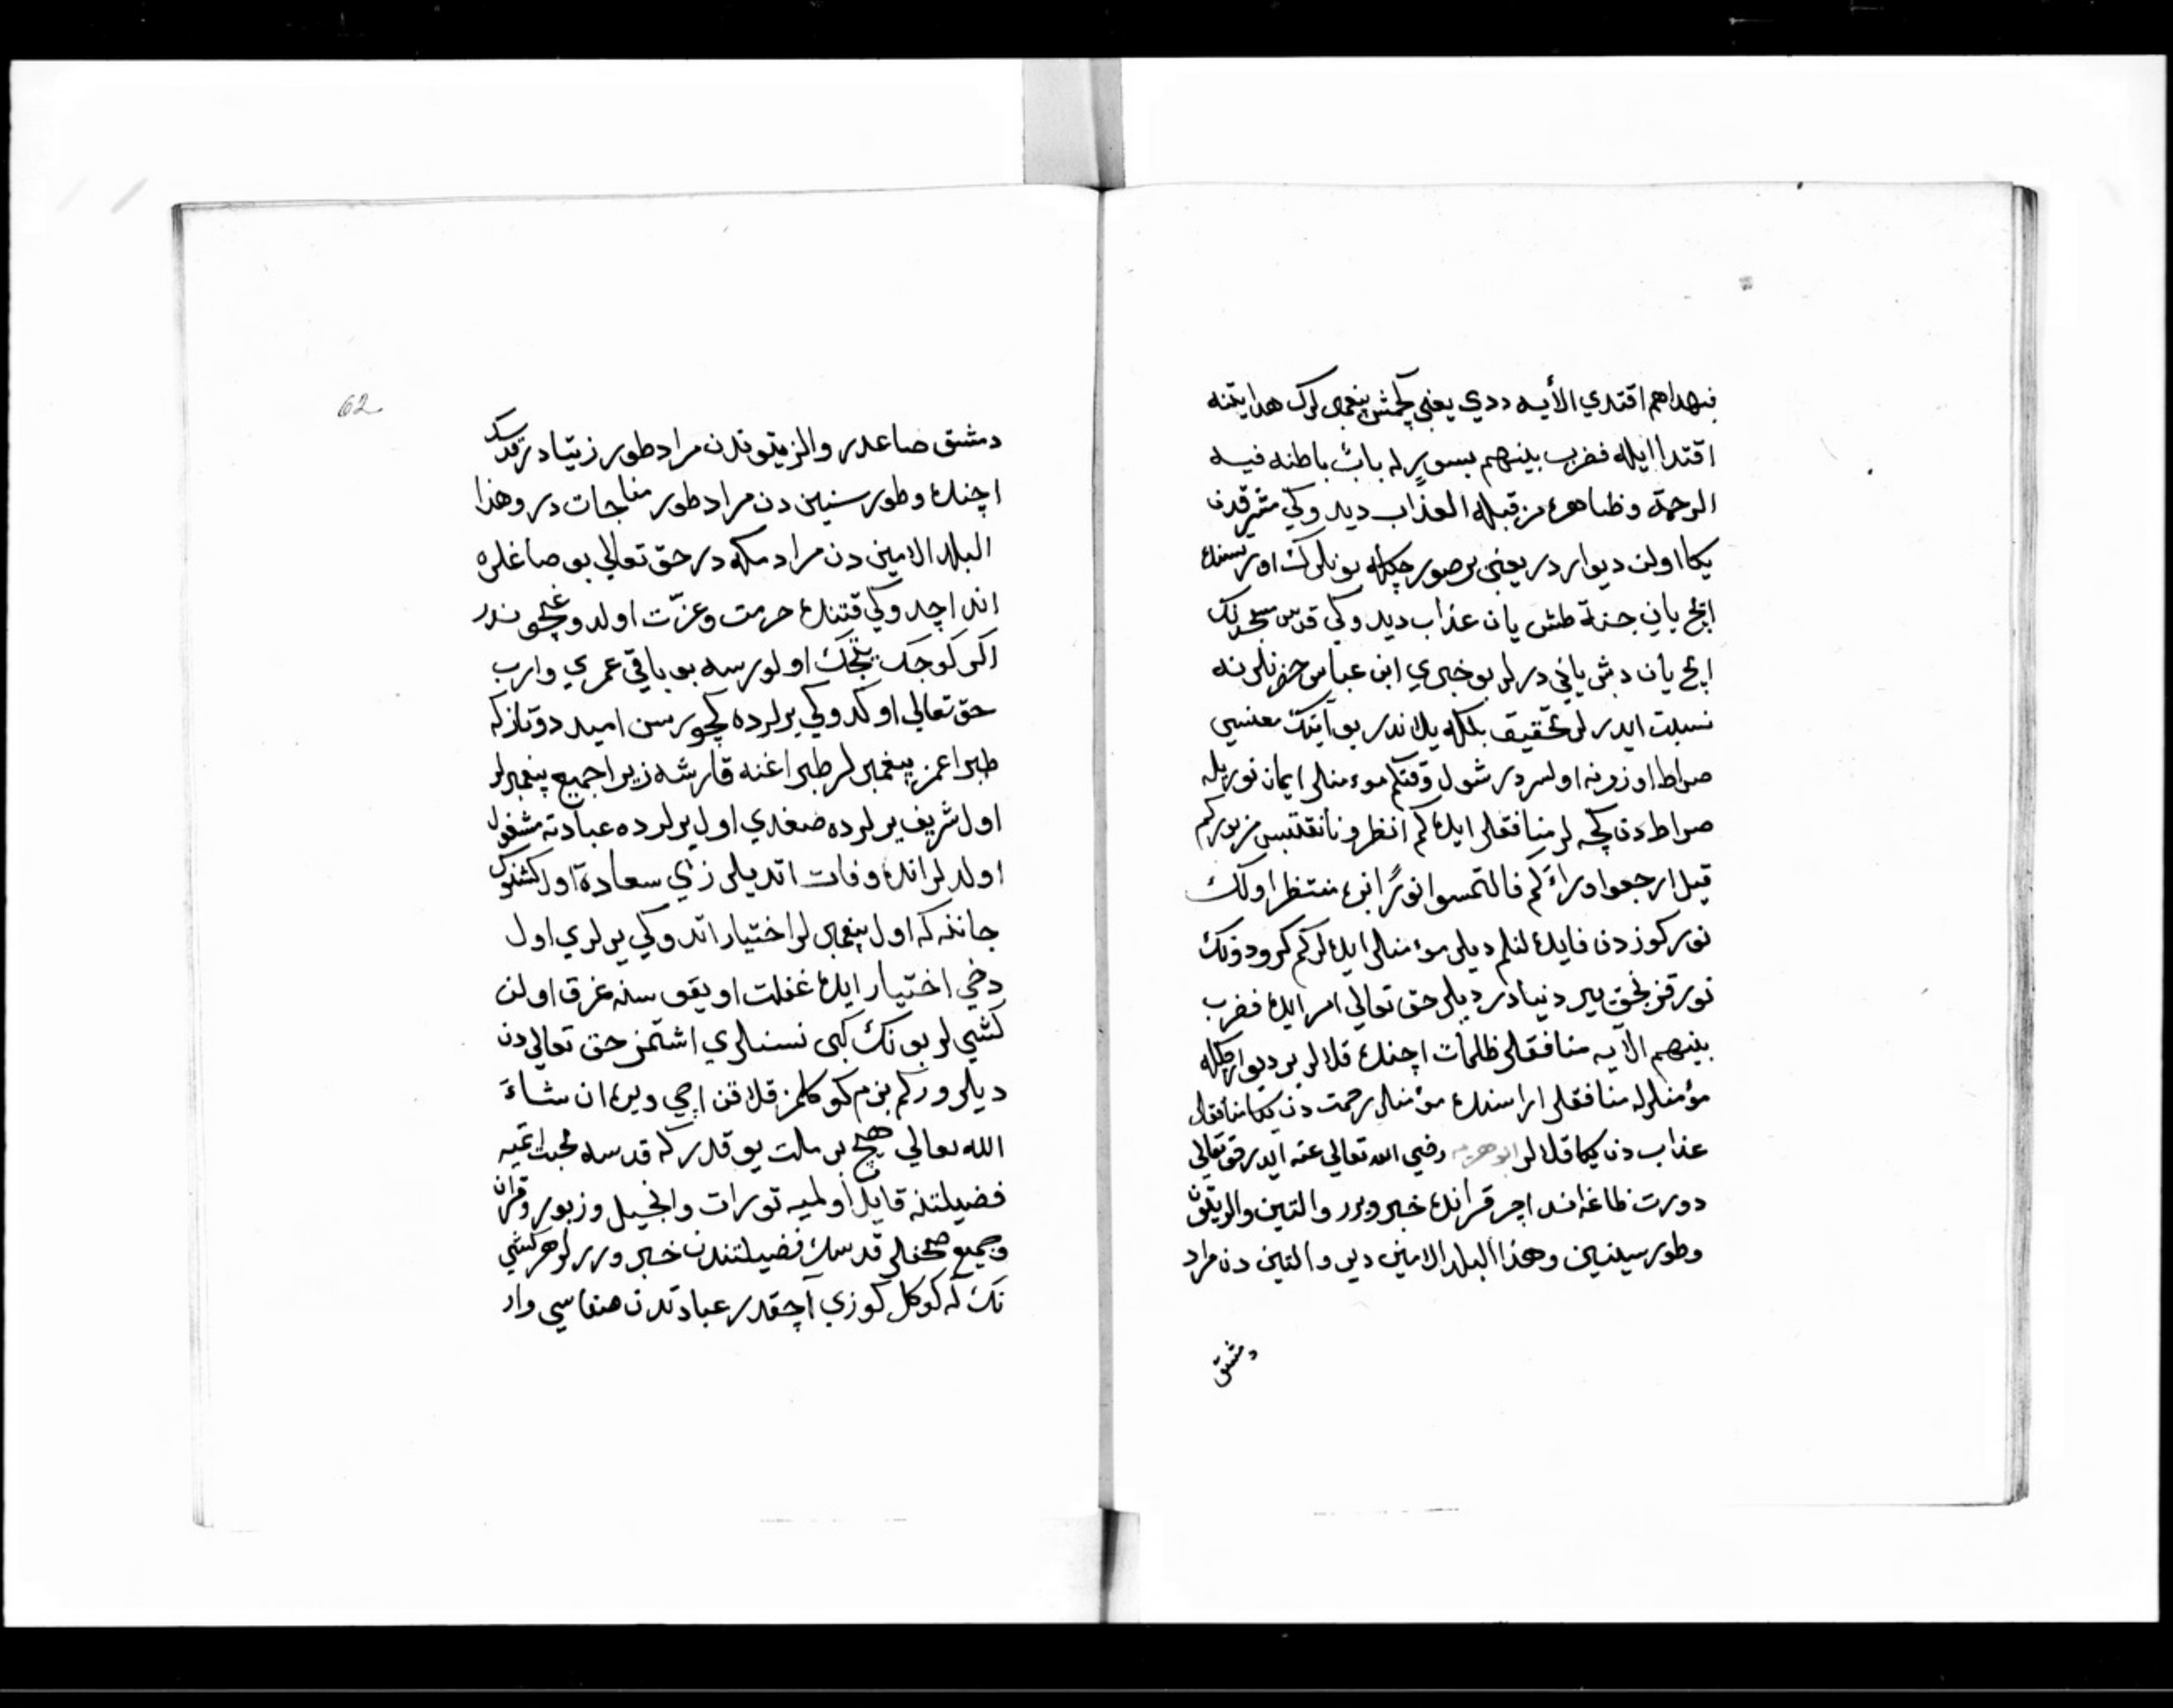 فبهداهم اقتدي الأيه ددي يعني كلمش پيغمبرلرك هدايتنه
اقتدا ايله فضرب بينهم بسورٍ له بابٌ باطنه فيه
الرحمة وظاهره من قبله العذاب ديدوكي مشرقدن
يكا اولن ديواردر يعني بر صور چكله بونلرك اورتسنده
ايچ ياني جنة طش يان عذاب ديدوكي قدس مسجدنك
ايچ يان دش ياني درلر بو خبري ابن عباس حضرتلرنه
نسبت ايدرلر تحقيق بلكله يلاندر بو آيتك معنسي
صراط اوزرنه اولسردر شول وقتكم موءمنلر ايمان نوريله
صراطدن كچه لر منافقلر ايده كم انظرونا نقتبس من نوركم
قيل ارجعوا وراءَكم فالتمسوا نورًا بزه منتظر اولك
نوركوزدن فايده لنلم ديلر موءمنلر ايده لركم كرو دونك
نور قزنجق ير دنيادر ديلر حق تعالي امر ايده فضرب
بينهم الآيه منافقلر ظلمات اچنده قلالر بر ديوار چكله
موءمنلرله منافقلر اراسنده موءمنلر رحمت دن يكا منافقلر
عذاب دن يكا قلالر ابو هريره رضي الله تعالي عنه ايدر حق تعالي
دورت طاغه اند اچر قرآنده خبر ويرر والتين والزيتون
وطور سينين وهذا البلد الامين دير والتين دن مراد
دمشق
62
دمشق ضاغدر والزيتوندن مراد طور زيتادر قدسك
اچنده وطور سينين دن مراد طور مناجات در وهذا
البلد الامين دن مراد مكه در حق تعالي بو ضاغلره
اند اچدوكي قتنده حرمت وعزّت اولدوغيچوندر
اكر كوجك يتجك اولورسه بو باقي عمري وارب
حق تعالي اوكدوكي يرلرده كچورسن اميد دوتارزكه
طپراغمز پيغمبرلر طپراغنه قارشه زيرا جميع پيغمبرلر
اول شريف يرلرده ضغدي اول يرلرده عبادته مشغول
اولدلر انده وفات اتديلر زي سعادة اول كشنوك
جاننه كه اول پيغمبرلر اختيار اتدوكي يرلري اول
دخي اختيار ايده غفلت اويقوسنه غرق اولن
كشيلر بونك كبي نسنلري اشتمز حق تعالي دن
ديلروزكم بزم كوكلمز قلاقن اچي ويره ان شاءَ
الله تعالي هيچ بر ملت يوقدركه قدسه محبت اتميه
فضيلتنه قايل اولميه تورات وانجيل وزبور وقرآن
وجميع صحفلر قدسك فضيلتندن خبر وررلر هر كشي
نك كه كوكل كوزي آچقدر عبادتدن صفاسي وار